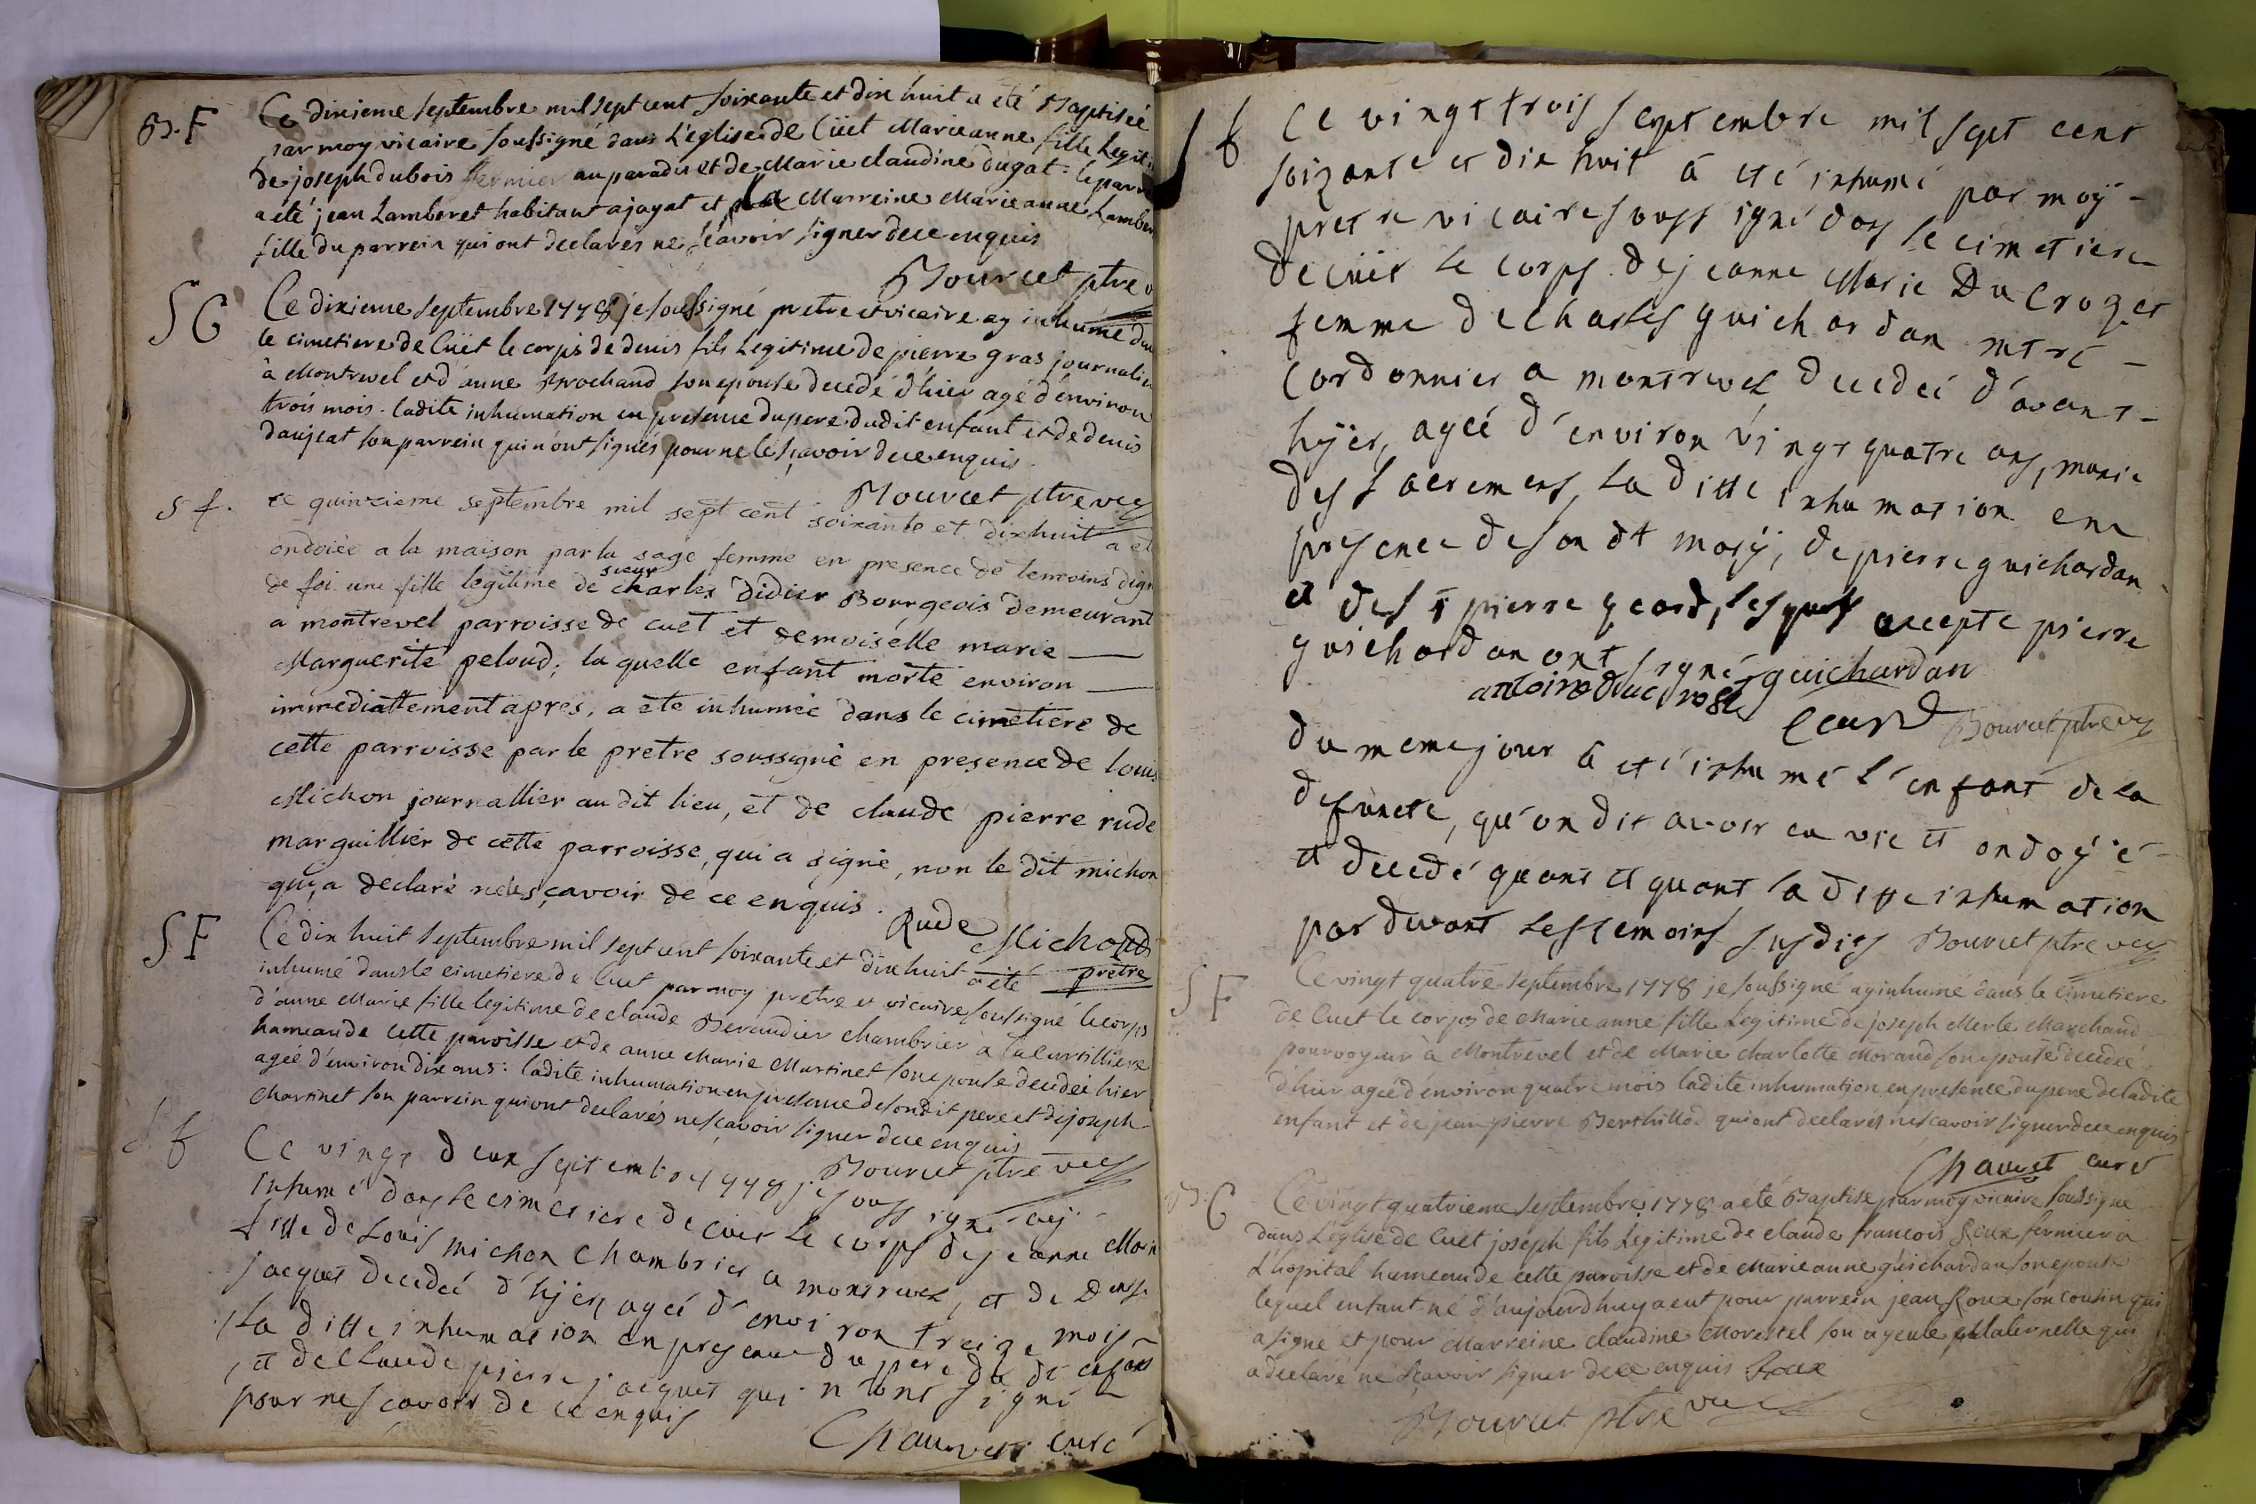 B.F
Ce dixieme septembre mil sept cent soixante et dix huit a été Baptisée
par moy vicaire soussigné dans l'église de Cüet Marie anne fille Legit
de joseph dubois fermier au paradis et de Marie claudine dugat : le parr
a été jean Lamberet habitant a jayat et la Marreine Marie anne Lamber
fille du parrein qui ont declarés ne sçavoir signer de ce enquis
Bourcet ptre v
SG
Ce dixieme septembre 1778 je soussigné pretre et vicaire ay inhumé dan
le cimetiere de Cüet le corps de denis fils Legitime de pierre gras journalie
à Montrevel et d'anne Brochand son epouse decedé d'hier agé d'environ
trois mois. ladite inhumation en presence du pere dudit enfant et de denis
daujeat son parrein qui n'ont signés pour ne le sçavoir de ce enquis.
Bourcet ptre vic
s f.
ce quinzieme septembre mil sept cent soixante et dixhuit a et
ondoiée a la maison par la sage femme en presence de temoins dign
de foi une fille legitime de sieur charles Didier Bourgeois demeurant
a montrevel parroisse de cuet et demoiselle marie
Marguerite peloud; la quelle enfant morte environ
immediattement apres, a ete inhumée dans le cimetiere de
cette parroisse par le pretre soussigné en presence de loui
Michon journallier au dit lieu, et de claude pierre rude
marguillier de cette parroisse, qui a signé, non le dit michon
qui a declaré ne le sçavoir de ce enquis.
Rude Michoud
prêtre
SF
Ce dix huit septembre mil sept cent soixante et dix huit a été
inhumé dans le cimetiere de Cuet par moy pretre et vicaire soussigné le corps
d'anne Marie fille legitime de claude Beraudier chambrier à la Curtilliere
hameau de cette paroisse et de anne Marie Martinet son epouse decedée hier
agée d'environ dix ans : ladite inhumation en presence de sondit pere et de joseph
Martinet son parrein qui ont declarés ne sçavoir signer de ce enquis
Bourcet ptre vic
s. f
Ce vingt deux septembre 1778 je soussigné ay
inhumé dans le cimetiere de cuet le corps de jeanne Marie
fille de Louis michon chambrier a montrevel, et de Denise
jacquet decedée d'hyer agée d'environ treize mois
la ditte inhumation en presence du pere du dt enfant
et de Claude pierre jacquet qui n'ont signé
pour ne scavoir de ce enquis
Chauvet curé
s f
Ce vingt trois septembre mil sept cent
soixante et dix huit a eté inhumé par moÿ
pretre vicaire soussigné dans le cimetiere
de cuët le corps de jeanne Marie Du Crozet
femme de charles guichardan mtre
cordonnier a montrevel decedeé d'avant
hÿer, agée d'environ vingt quatre ans, munie
des sacremens, la ditte inhumation en
presence de son dt marÿ, de pierre guichardan
et de st pierre Geard, lesquels excepte pierre
guichardan ont signé guichardan
antoine ducroset
Geard Bourcet ptre vic
du meme jour a eté inhumé l'enfant de la
defuncte, qu'on dit avoir eu vie et ondoÿé
et decedé quant et quant la ditte inhumation
par devant les temoins susdits Bourcet ptre vic
SF
Ce vingt quatre septembre 1778 je soussigné ay inhumé dans le cimetiere
de Cuet le corps de Marie anne fille Legitime de joseph Merle Marchand
pourvoyeur à Montrevel et de Marie charlotte Morand son epouse decedée
d'hier agée d'environ quatre mois ladite inhumation en presence du pere de ladite
enfant et de jean pierre Berthillod qui ont declarés ne scavoir signer de ce enquis
Chauvet curé
B. G
Ce vingt quatrieme septembre 1778 a été Baptisé par moy vicaire soussigné
dans L'église de Cuet joseph fils Legitime de claude francois Roux fermier a
L'hopital hameau de cette paroisse et de Marie anne guichardan son epouse
lequel enfant né d'aujourdhuy a eut pour parrein jean Roux son cousin qui
a signé et pour Marreine claudine Morestel son ayeule paternelle qui
a declaré ne sçavoir signer de ce enquis Roux
Bourcet ptre vic